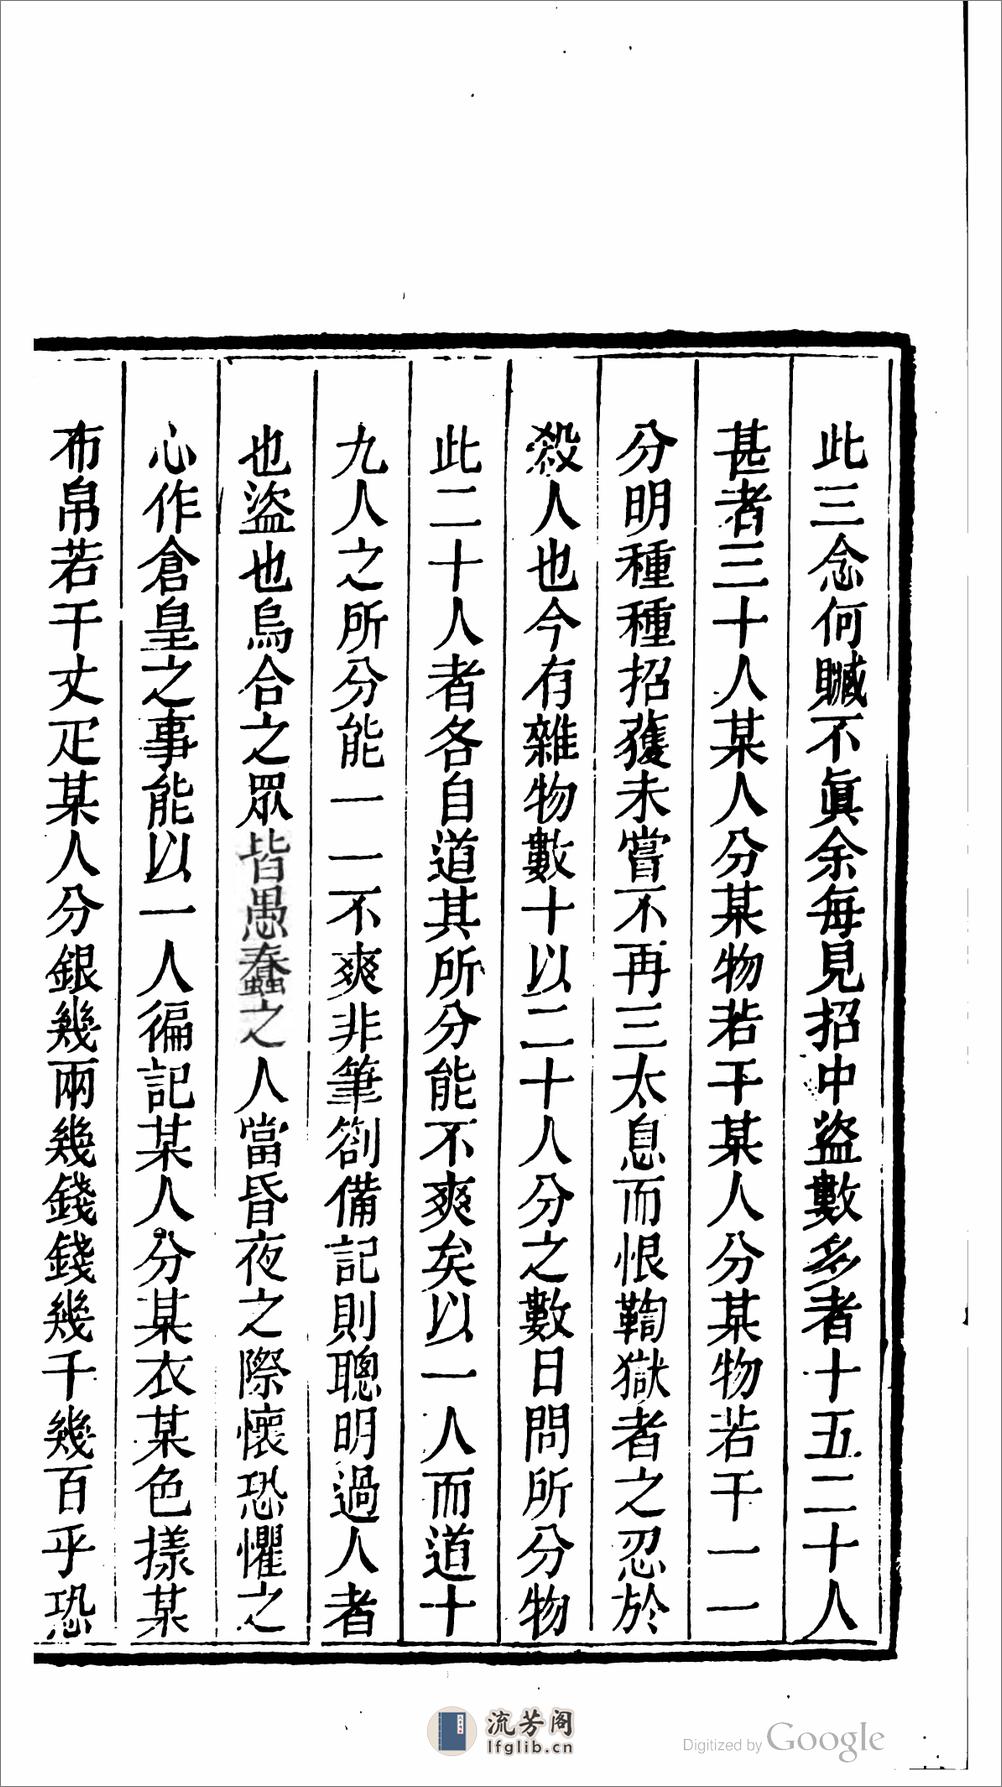 此三念何贓不眞余每見招中盜數多者十五二十人
甚者三十人某人分某物若干某人分某物若干一一
分明種種招獲未嘗不再三太息而恨鞫獄者之忍於
殺人也今有雜物數十以二十人分之數日問所分物
此二十人者各自道其所分能不爽矣以一人而道十
九人之所分能一一不爽非筆劄備記則聰明過人者
也盜也烏合之眾皆愚蠢之人當昏夜之際懷恐懼之
心作倉皇之事能以一人徧記某人分某衣某色樣某
布帛若干丈疋某人分銀幾兩幾錢錢幾千幾百乎恐
流芳阁
lfglib.cn
Digitized by Google